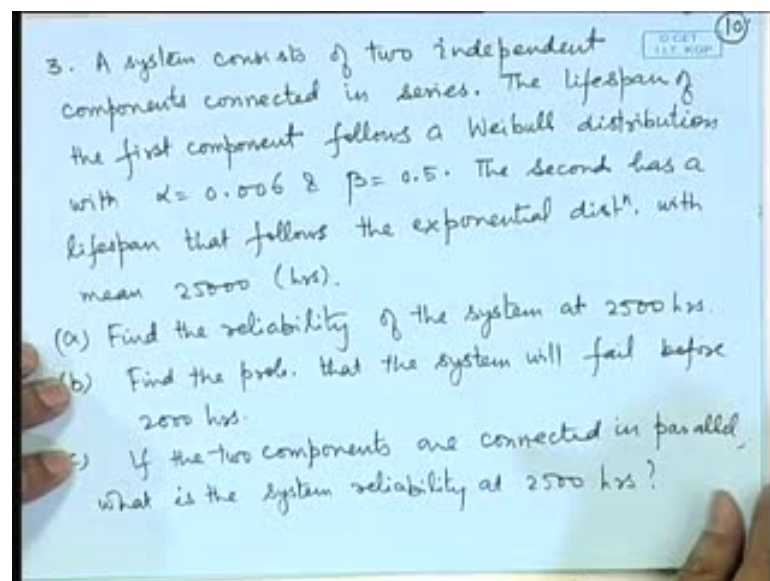 10
O CET
I.I.T. KGP
3. A system consists of two independent
components connected in series. The lifespan of
the first component follows a Weibull distribution
with α = 0.006 & β = 0.5. The second has a
lifespan that follows the exponential distⁿ. with
mean 25000 (hrs).
(a) Find the reliability of the system at 2500 hrs.
(b) Find the prob. that the system will fail before
2000 hrs.
c) If the two components are connected in parallel,
what is the system reliability at 2500 hrs?